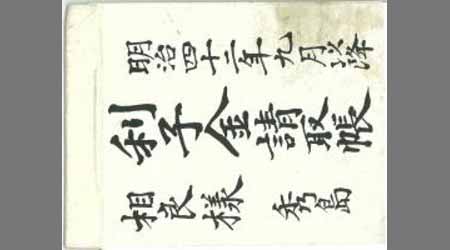 明治四十二年九月以降
利子金請取帳
相良様 秀島